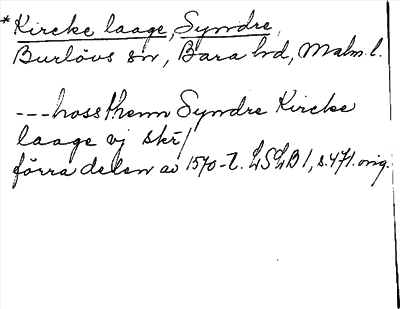 * Kircke laage, Syndre,
Burlövs sn, Bara hd, Malm. l.
--- hoss them Syndre Kircke
laage vj skr/
förra delen av 1570-t. LSLB 1, s. 471. orig.